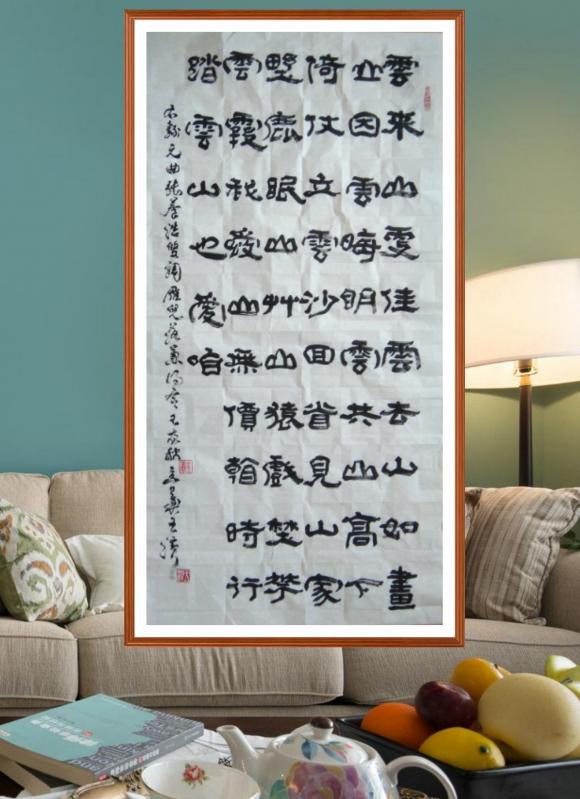 雲來山更佳雲去山如畫
山因雲晦明雲共山高下
倚仗立雲沙回首見山家
野鹿眠山艸山猿戲埜華
雲霞我愛山無價看時行
踏雲山也愛咱
右錄元曲張養浩雙調雁兒落兼得勝令